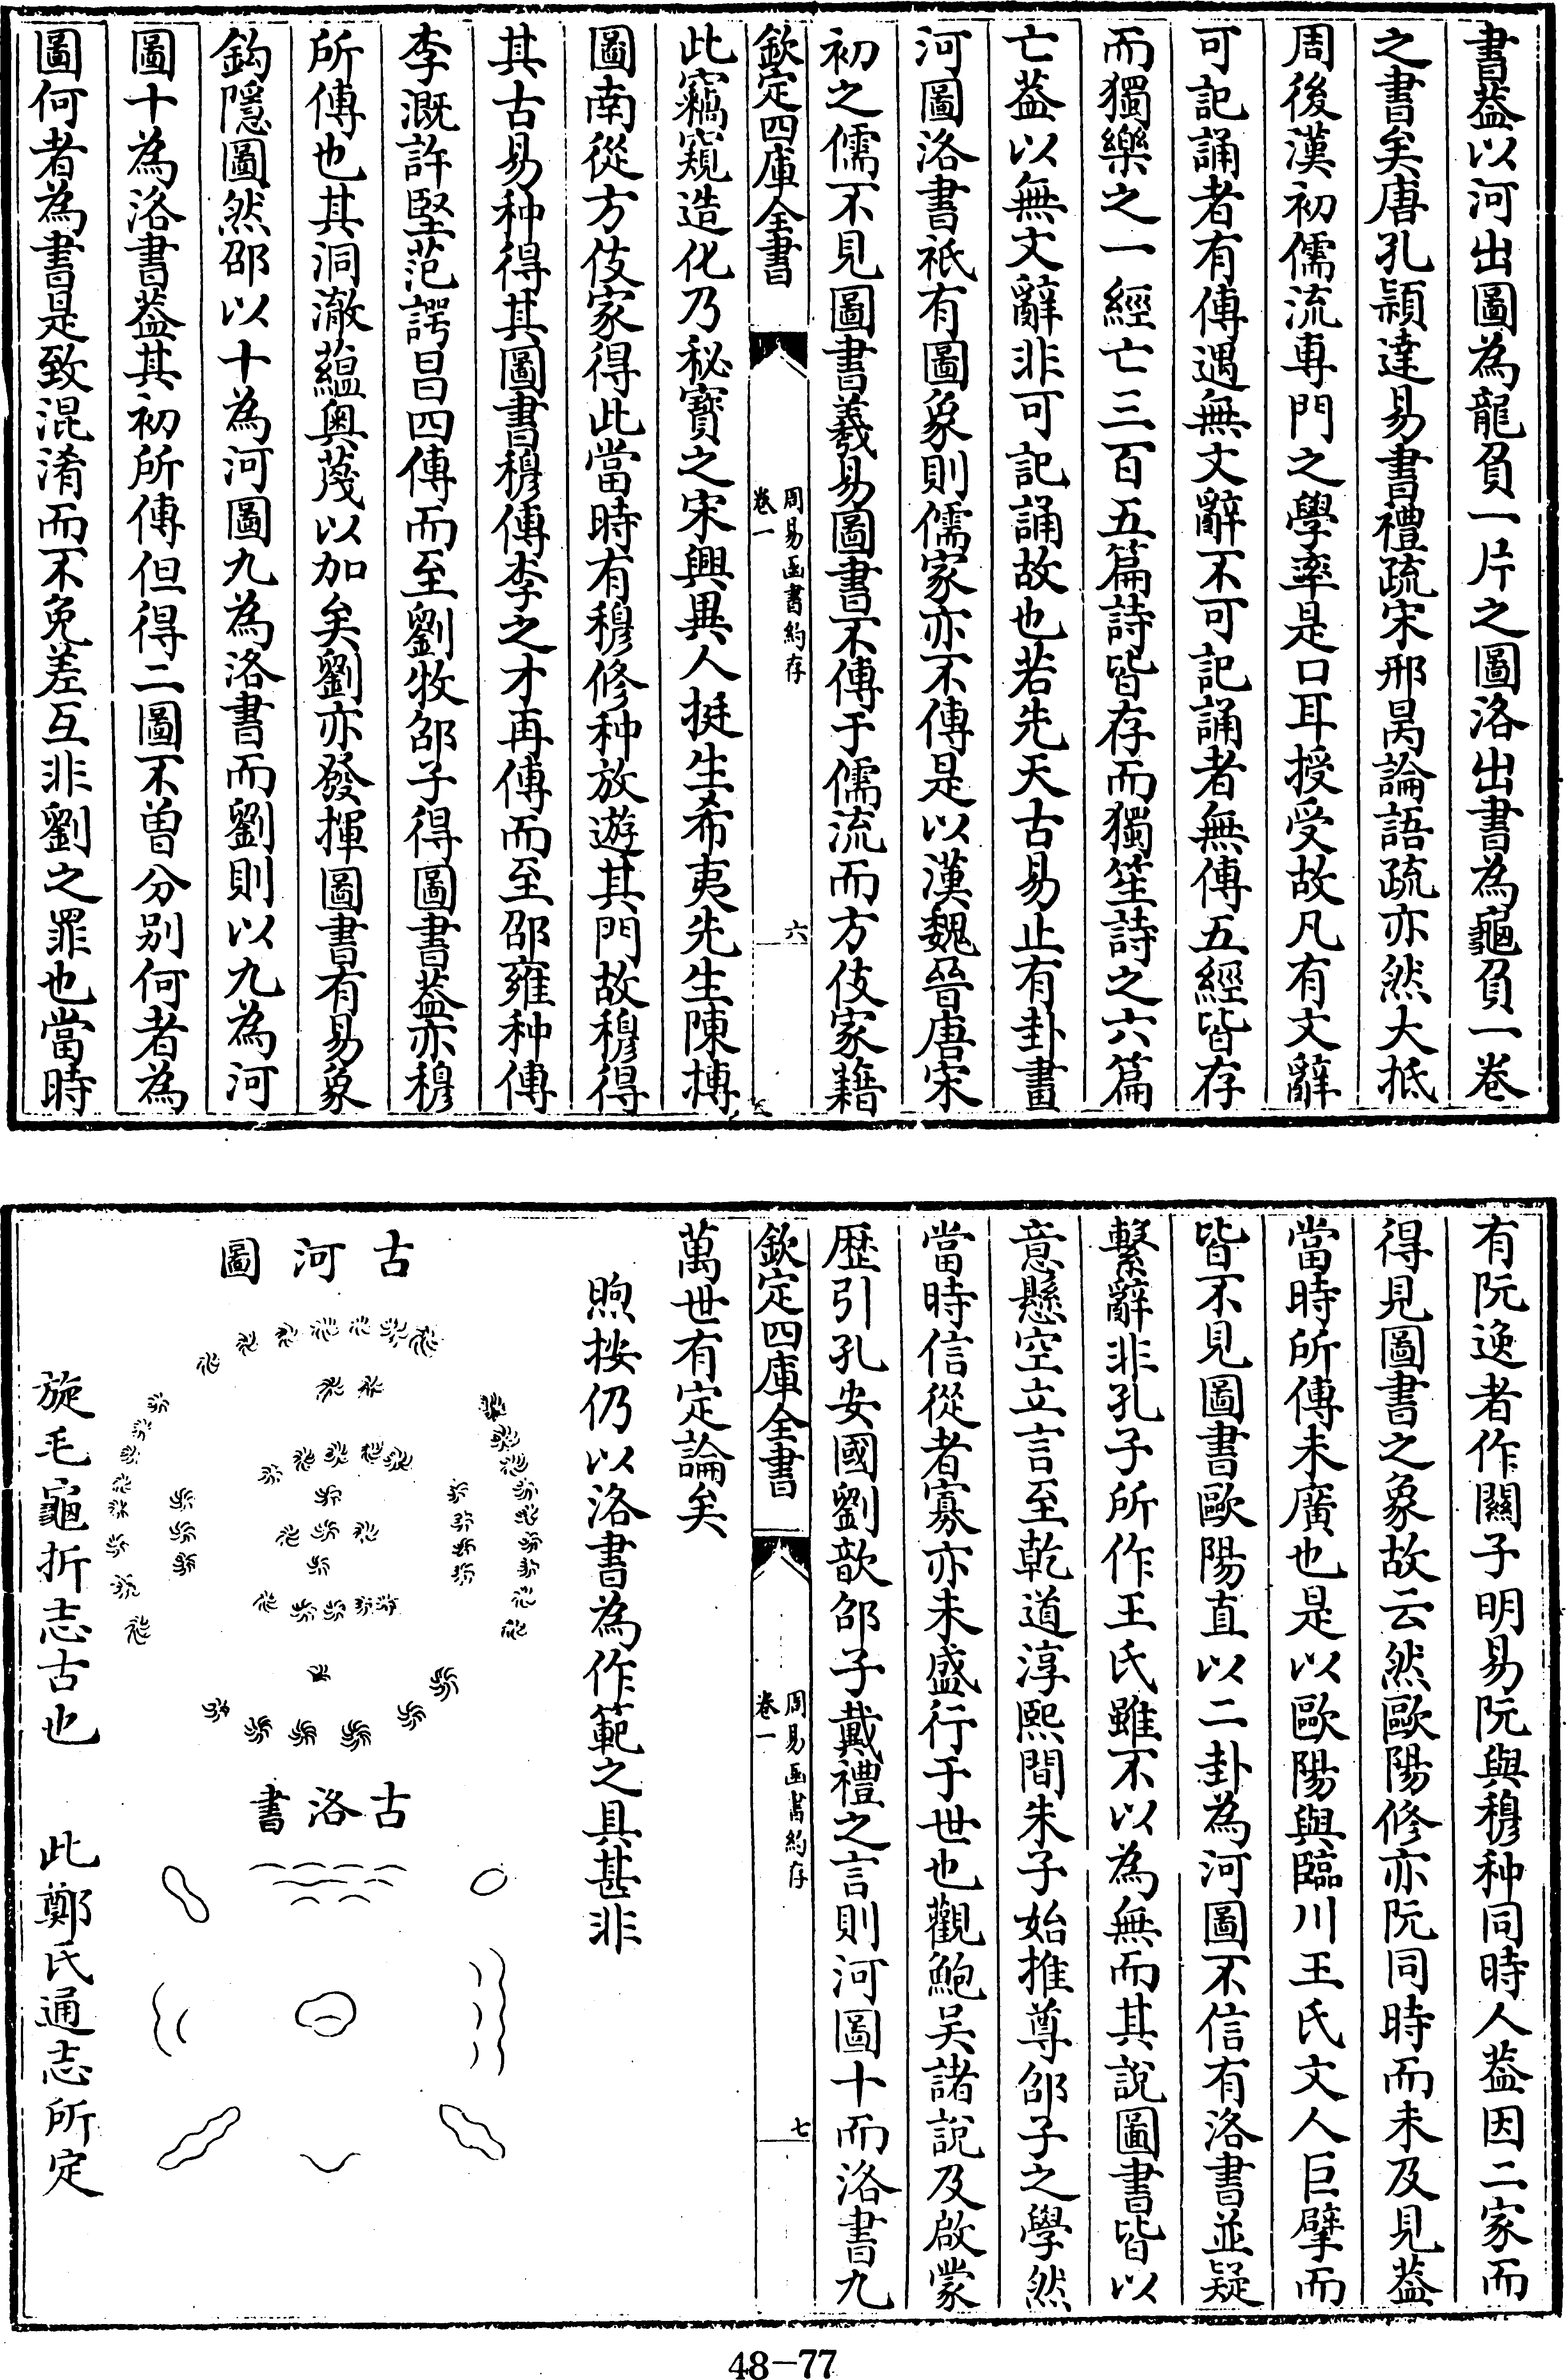 書葢以河出圖為龍負一片之圖洛出書為龜負一卷
之書矣唐孔頴達易書禮疏宋邢昺論語疏亦然大抵
周後漢初儒流專門之學率是口耳授受故凡有文辭
可記誦者有傳遇無文辭不可記誦者無傳五經皆存
而獨樂之一經亡三百五篇詩皆存而獨笙詩之六篇
亡葢以無文辭非可記誦故也若先天古易止有卦畫
河圖洛書祇有圖象則儒家亦不傳是以漢魏晉唐宋
初之儒不見圖書羲易圖書不傳于儒流而方伎家籍
欽定四庫全書
周易函書約存
卷一
六
此竊窺造化乃秘寶之宋興異人挺生希夷先生陳摶
圖南從方伎家得此當時有穆修种放遊其門故穆得
其古易种得其圖書穆傳李之才再傳而至邵雍种傳
李溉許堅范諤昌四傳而至劉牧邵子得圖書葢亦穆
所傳也其洞澈蘊奧蔑以加矣劉亦發揮圖書有易象
鈎隱圖然邵以十為河圖九為洛書而劉則以九為河
圖十為洛書葢其初所傳但得二圖不曾分别何者為
圖何者為書是致混淆而不免差互非劉之罪也當時
有阮逸者作關子明易阮與穆种同時人葢因二家而
得見圖書之象故云然歐陽修亦阮同時而未及見葢
當時所傳未廣也是以歐陽與臨川王氏文人巨擘而
皆不見圖書歐陽直以二卦為河圖不信有洛書並疑
繫辭非孔子所作王氏雖不以為無而其說圖書皆以
意懸空立言至乾道淳熙間朱子始推尊邵子之學然
當時信從者寡亦未盛行于世也觀鮑吴諸說及啟蒙
歴引孔安國劉歆邵子戴禮之言則河圖十而洛書九
欽定四庫全書
周易函書約存
卷一
七
萬世有定論矣
煦按仍以洛書為作範之具甚非
古河圖
古洛書
旋毛龜折志古也　此鄭氏通志所定
48-77